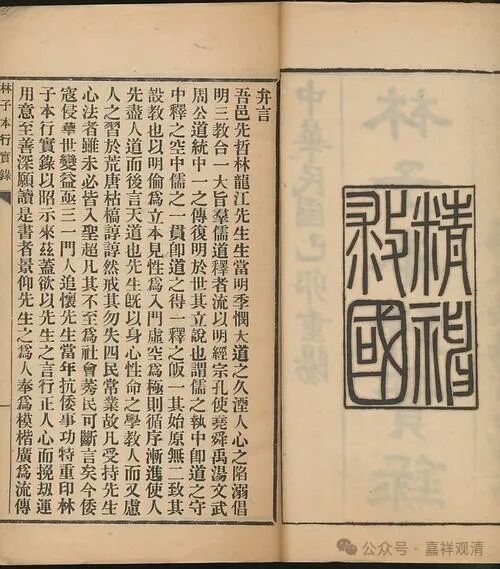 精神
救國
弁言
吾邑先哲林龍江先生生當明季憫大道之久湮人心之陷溺倡
明三教合一大旨羣儒道釋者流以明經宗孔使堯舜禹湯文武
周公道統中一之傳復明於世其立說也謂儒之執中卽道之守
中釋之空中儒之一貫卽道之得一釋之皈一其始原無二致其
設教也以明倫爲立本見性爲入門虛空爲極則循序漸進使人
先盡人道而後言天道也先生旣以身心性命之學教人而又慮
人之習於荒唐枯槁諄諄然戒其勿失四民常業故凡受持先生
心法者雖未必皆入聖超凡其不至爲社會莠民可斷言矣今倭
寇侵華世變益亟三一門人追懷先生當年抗倭事功特重印林
子本行實錄以昭示來茲蓋欲以先生之言行正人心而挽劫運
用意至善深願讀是書者景仰先生之爲人奉爲模楷廣爲流傳
林子本行實錄
公众号·嘉祥观清